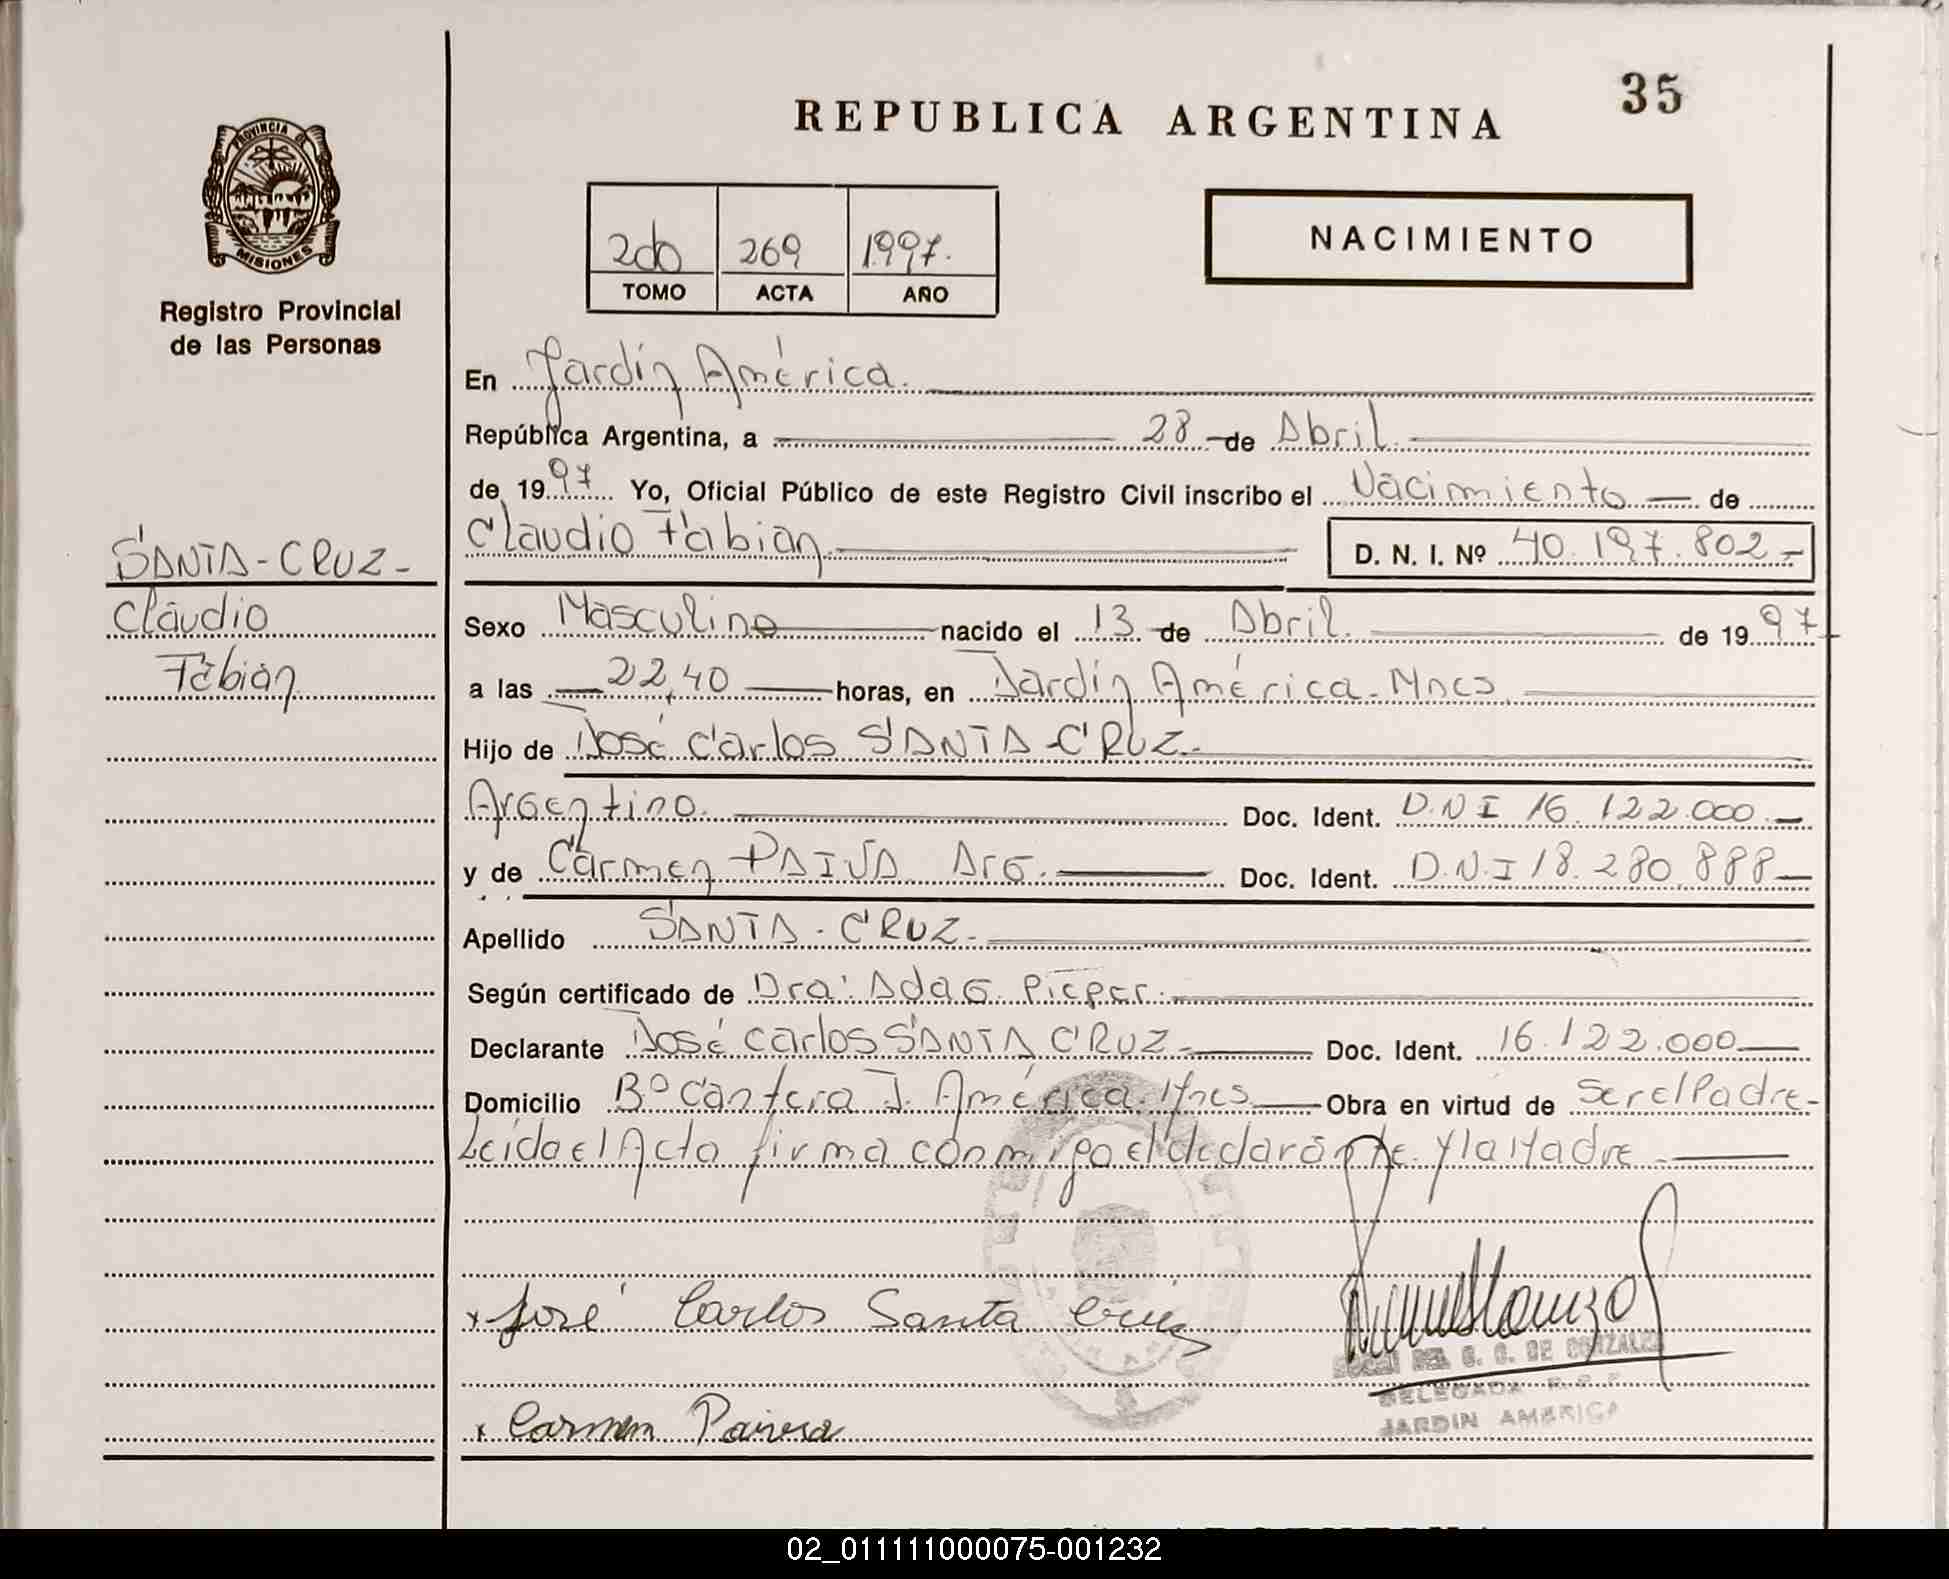 35
REPUBLICA ARGENTINA
PROVINCIA DE
MISIONES
Registro Provincial
de las Personas
2do 269 1.997.
TOMO ACTA AÑO
NACIMIENTO
En Jardín América.
República Argentina, a 28 de Abril.
de 1997 Yo, Oficial Público de este Registro Civil inscribo el Nacimiento de
Claudio Fabian
D. N. I. Nº 40.197.802-
SANTA-CRUZ-
Claudio
Fabian
Sexo Masculino nacido el 13 de Abril. de 1997
a las 22,40 horas, en Jardín América. Mnes.
Hijo de José Carlos SANTA-CRUZ.-
Argentino. Doc. Ident. D.N I 16.122.000.-
y de Carmen PAIVA Arg. Doc. Ident. D.N.I 18.280.888-
Apellido SANTA-CRUZ.-
Según certificado de Dra: Pieper.
Declarante José Carlos SANTA CRUZ.- Doc. Ident. 16.122.000
Domicilio Bº Cantera J. América. Mnes Obra en virtud de Ser el Padre-
Leida el Acta firma conmigo el declarante y la Madre.
José Carlos Santa Cruz
DE GONZALEZ
DELEGADA R.P.P
JARDIN AMERICA
Carmen
02_011111000075-001232